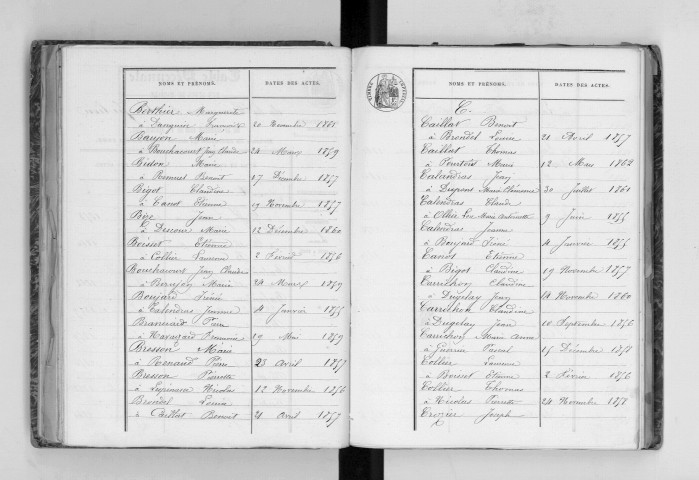 NOMS ET PRÉNOMS. DATES DES ACTES.
Berthier Marguerite
à François 20 Novembre 1858
Baujon Marie
à Bouchacourt Jean Claude 24 Mars 1859
Marie
à Benoit 17 Décembre 1857
Bigot Claudine
à Canot Etienne 19 Novembre 1857
Jean
à Marie 12 Décembre 1860
Boisset Etienne
à Collier 2 Février 1856
Bouchacourt Jean Claude
à Baujon Marie 24 Mars 1859
Boujard Irénée
à Calendras Jeanne 4 Janvier 1855
Pierre
à 19 Mai 1859
Bresson Marie
à Renaud Pierre 23 Avril 1857
Bresson Pierrette
à Lespinasse Nicolas 12 Novembre 1856
Brondel Louise
à Caillat Benoit 21 Avril 1857
NOMS ET PRÉNOMS. DATES DES ACTES.
C.
Caillat Benoit
à Brondel Louise 21 Avril 1857
Caillat Thomas
à Marie 12 Mars 1862
Calendras Jean
à Dupont 30 Juillet 1861
Calendras Claude
à Marie Antoinette 9 Juin 1855
Calendras Jeanne
à Boujard Irénée 4 Janvier 1855
Canot Etienne
à Bigot Claudine 19 Novembre 1857
Carrichon Claudine
à Dugelay Jean 14 Novembre 1860
Carrichon Claudine
à Dugelay Jean 10 Septembre 1856
Carrichon Jeanne
à Guerrin Pascal 15 Décembre 1858
Collier
à Boisset Etienne 2 Février 1856
Collier Thomas
à Nicolas Pierrette 24 Novembre 1858
Crozier Joseph